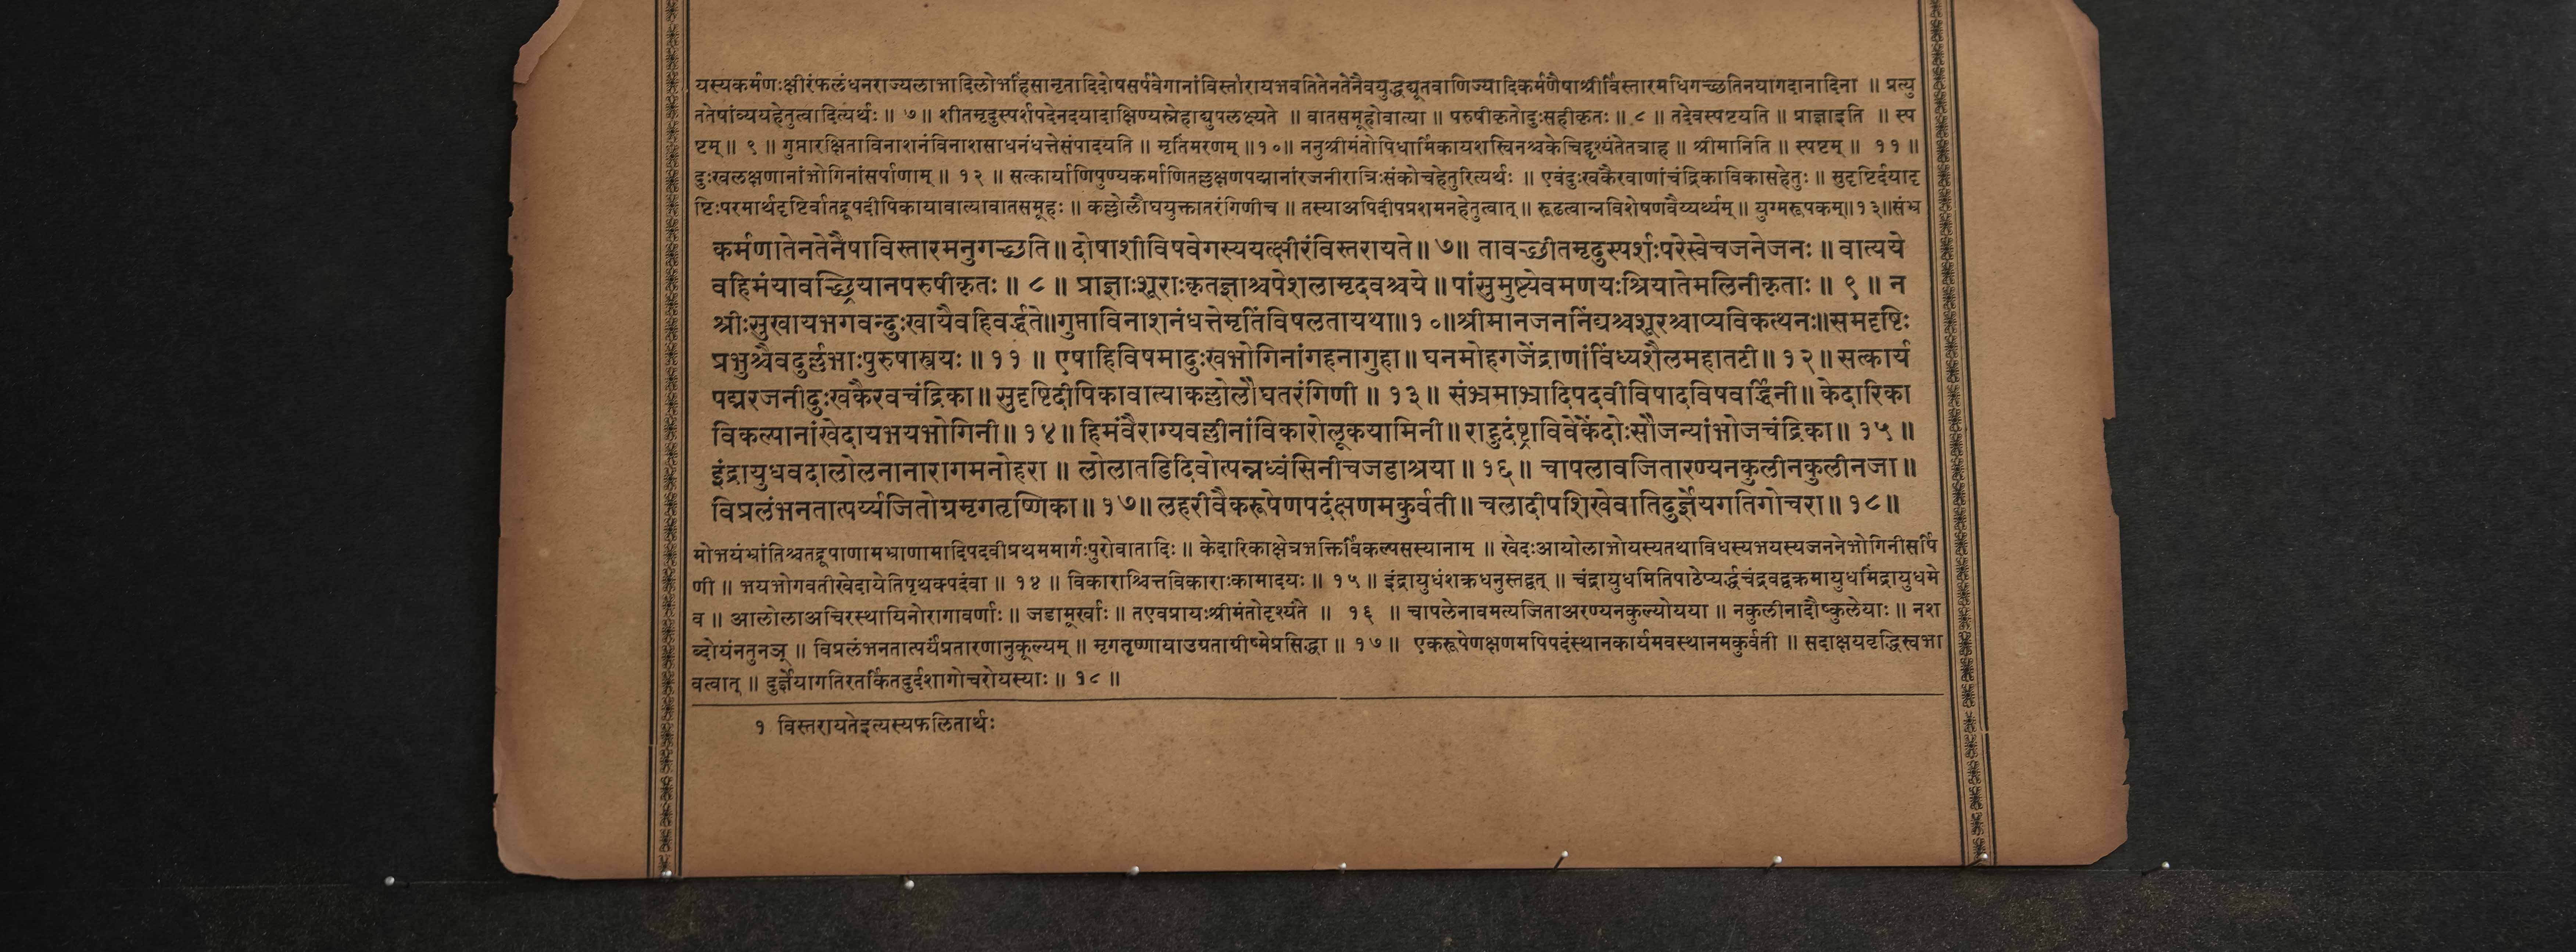 यस्यकर्मणःक्षीरंफलंधनराज्यलाभादिलोभहिंसानृतादिदोषसर्पवेगानांविस्तारायभवतितेनतेनैवयुद्धद्यूतवाणिज्यादिकर्मणैषाश्रीर्विस्तारमधिगच्छतिनयागदानादिना ॥ प्रत्यु
ततेषांव्ययहेतुत्वादित्यर्थः ॥ ७ ॥ शीतमृदुस्पर्शपदेनदयादाक्षिण्यस्नेहाद्युपलक्ष्यते ॥ वातसमूहोवात्या ॥ परुषीकृतोदुःसहीकृतः ॥ ८ ॥ तदेवस्पष्टयति ॥ प्राज्ञाइति ॥ स्प
ष्टम् ॥ ९ ॥ गुप्तारक्षिताविनाशनंविनाशसाधनंधत्तेसंपादयति ॥ मृतिंमरणम् ॥१०॥ ननुश्रीमंतोपिधार्मिकायशस्विनश्चकेचिद्दृश्यंतेतत्राह ॥ श्रीमानिति ॥ स्पष्टम् ॥ ११ ॥
दुःखलक्षणानांभोगिनांसर्पाणाम् ॥ १२ ॥ सत्कार्याणिपुण्यकर्माणितल्लक्षणपद्मानांरजनीरात्रिःसंकोचहेतुरित्यर्थः ॥ एवंदुःखकैरवाणांचंद्रिकाविकासहेतुः ॥ सुदृष्टिर्दयादृ
ष्टिःपरमार्थदृष्टिर्वातद्रूपदीपिकायावात्यावातसमूहः ॥ कल्लोलौघयुक्तातरंगिणीच ॥ तस्याअपिदीपप्रशमनहेतुत्वात् ॥ रूढत्वान्नविशेषणवैय्यर्थ्यम् ॥ युग्मरूपकम्॥१३॥संभ्र
कर्मणातेनतेनैषाविस्तारमनुगच्छति॥ दोषाशीविषवेगस्ययत्क्षीरंविस्तरायते॥ ७॥ तावच्छीतमृदुस्पर्शःपरेस्वेचजनेजनः ॥ वात्यये
वहिमंयावच्छ्रियानपरुषीकृतः ॥ ८ ॥ प्राज्ञाःशूराःकृतज्ञाश्चपेशलामृदवश्चये ॥ पांसुमुष्ट्येवमणयःश्रियातेमलिनीकृताः ॥ ९ ॥ न
श्रीःसुखायभगवन्दुःखायैवहिवर्द्धते॥गुप्ताविनाशनंधत्तेमृतिंविषलतायथा॥१०॥श्रीमानजननिंद्यश्चशूरश्चाप्यविकत्थनः॥समदृष्टिः
प्रभुश्चैवदुर्लभाःपुरुषास्त्रयः ॥ ११ ॥ एषाहिविषमादुःखभोगिनांगहनागुहा॥ घनमोहगजेंद्राणांविंध्यशैलमहातटी॥ १२॥ सत्कार्य
पद्मरजनीदुःखकैरवचंद्रिका॥ सुदृष्टिदीपिकावात्याकल्लोलौघतरंगिणी ॥ १३॥ संभ्रमाभ्रादिपदवीविषादविषवर्द्धिनी॥ केदारिका
विकल्पानांखेदायभयभोगिनी॥ १४॥ हिमंवैराग्यवल्लीनांविकारोलूकयामिनी॥ राहुदंष्ट्राविवेकेंदोःसौजन्यांभोजचंद्रिका॥ १५ ॥
इंद्रायुधवदालोलनानारागमनोहरा ॥ लोलातडिदिवोत्पन्नध्वंसिनीचजडाश्रया॥ १६॥ चापलावजितारण्यनकुलीनकुलीनजा॥
विप्रलंभनतात्पर्य्यजितोग्रमृगतृष्णिका॥ १७॥ लहरीवैकरूपेणपदंक्षणमकुर्वती॥ चलादीपशिखेवातिदुर्ज्ञेयगतिगोचरा॥ १८॥
मोभयंभ्रांतिश्चतद्रूपाणामभ्राणामादिपदवीप्रथममार्गःपुरोवातादिः ॥ केदारिकाक्षेत्रभक्तिर्विकल्पसस्यानाम् ॥ खेदःआयोलाभोयस्यतथाविधस्यभयस्यजननेभोगिनीसर्पि
णी ॥ भयभोगवतीखेदायेतिपृथक्पदंवा ॥ १४ ॥ विकाराश्चित्तविकाराःकामादयः ॥ १५ ॥ इंद्रायुधंशक्रधनुस्तद्वत् ॥ चंद्रायुधमितिपाठेप्यर्द्धचंद्रवद्वक्रमायुधमिंद्रायुधमे
व ॥ आलोलाअचिरस्थायिनोरागावर्णाः ॥ जडामूर्खाः ॥ तएवप्रायःश्रीमंतोदृश्यंते ॥ १६ ॥ चापलेनावमत्यजिताअरण्यनकुल्योयया ॥ नकुलीनादौष्कुलेयाः ॥ नश
ब्दोयंनतुनञ् ॥ विप्रलंभनतात्पर्यंप्रतारणानुकूल्यम् ॥ मृगतृष्णायाउग्रताग्रीष्मेप्रसिद्धा ॥ १७ ॥ एकरूपेणक्षणमपिपदंस्थानकार्यमवस्थानमकुर्वती ॥ सदाक्षयवृद्धिस्वभा
वत्वात् ॥ दुर्ज्ञेयागतिरतर्कितदुर्दशागोचरोयस्याः ॥ १८ ॥
१ विस्तरायतेइत्यस्यफलितार्थः